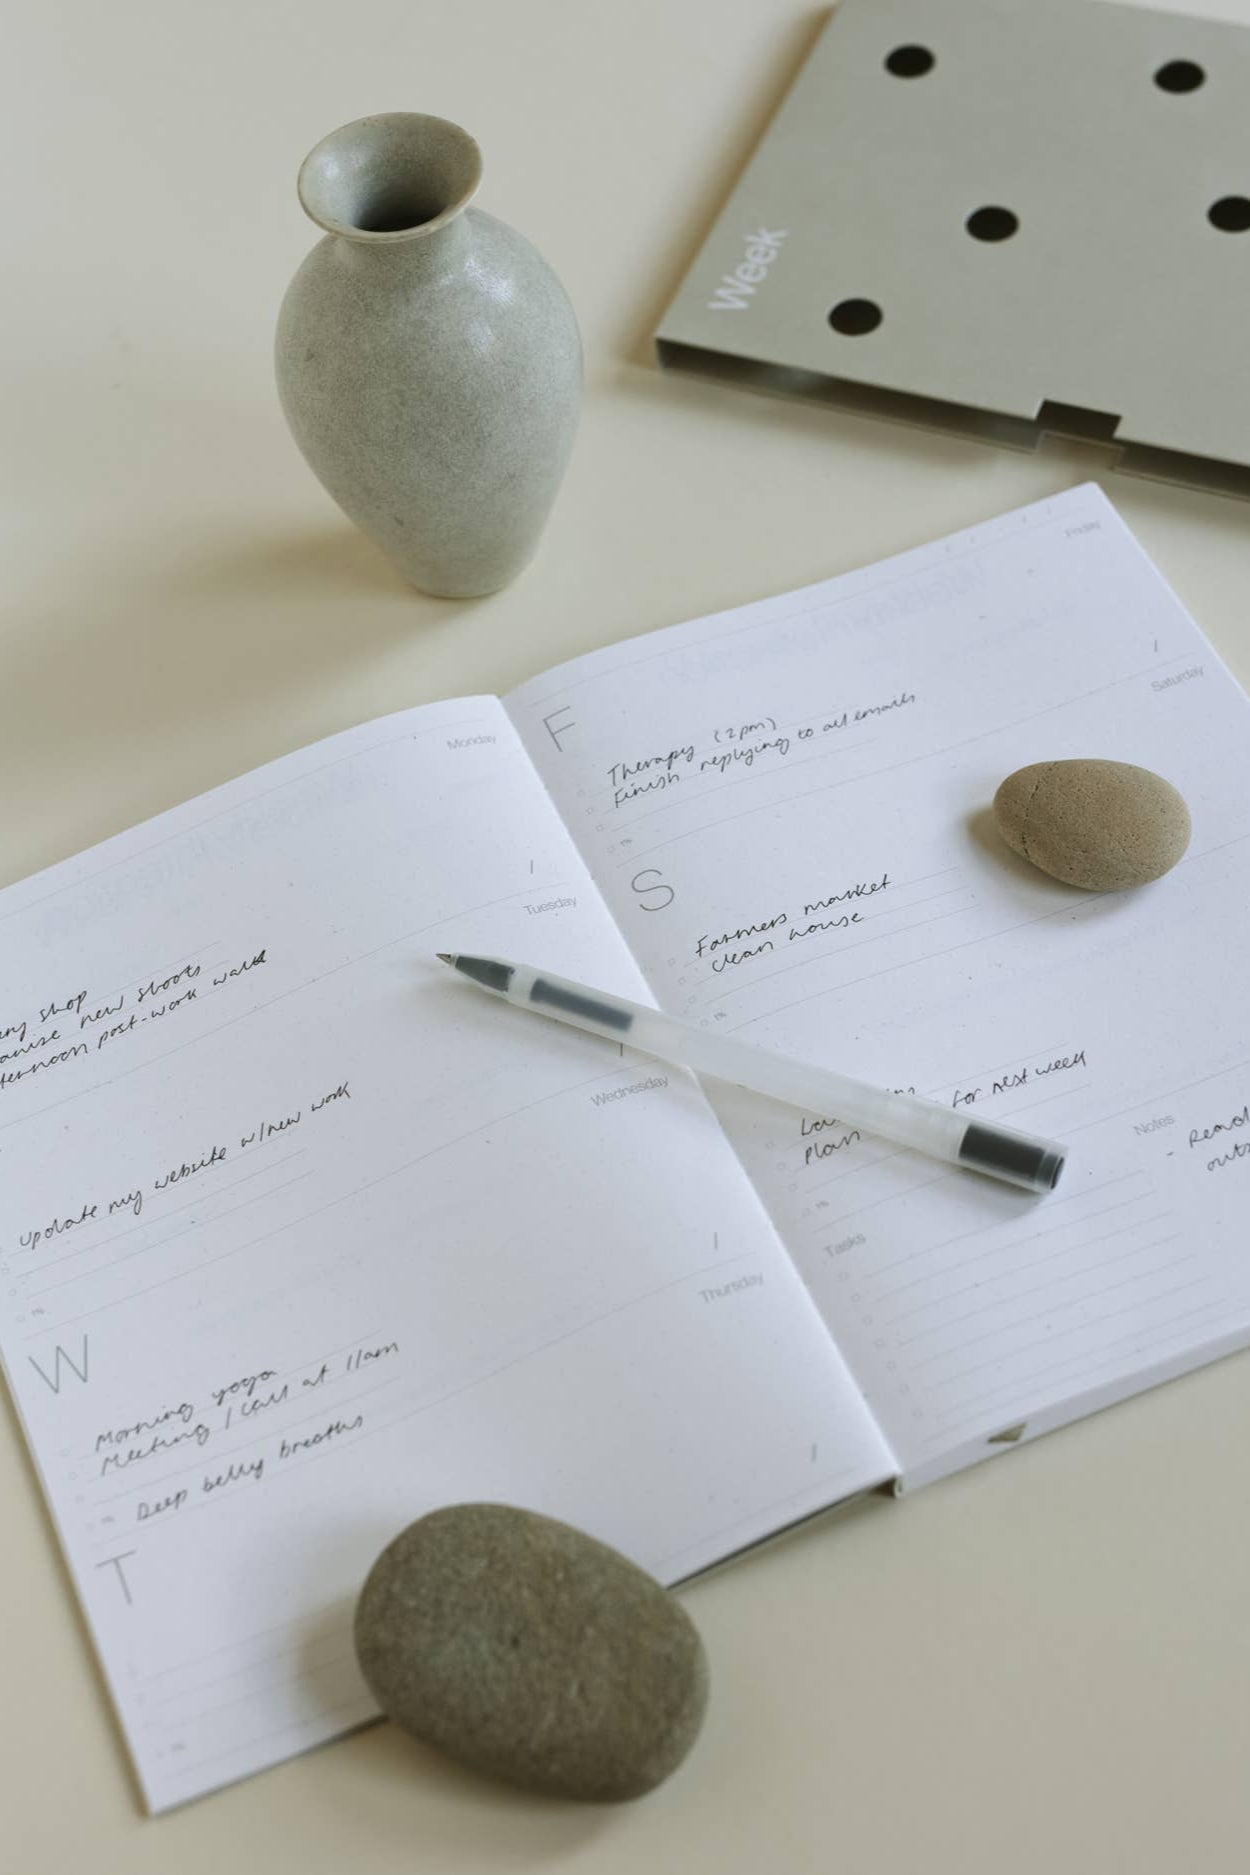 Week
Monday
ery shop
anise new shoots
ternoon post-work walk
Tuesday
update my website w/new work
Wednesday
W
Morning yoga
Meeting / call at 11am
Deep belly breaths
Thursday
T
Friday
F
Therapy (2pm)
Finish replying to all emails
Saturday
S
Farmers market
clean house
Plan for next week
Notes
- Read
outs
Tasks